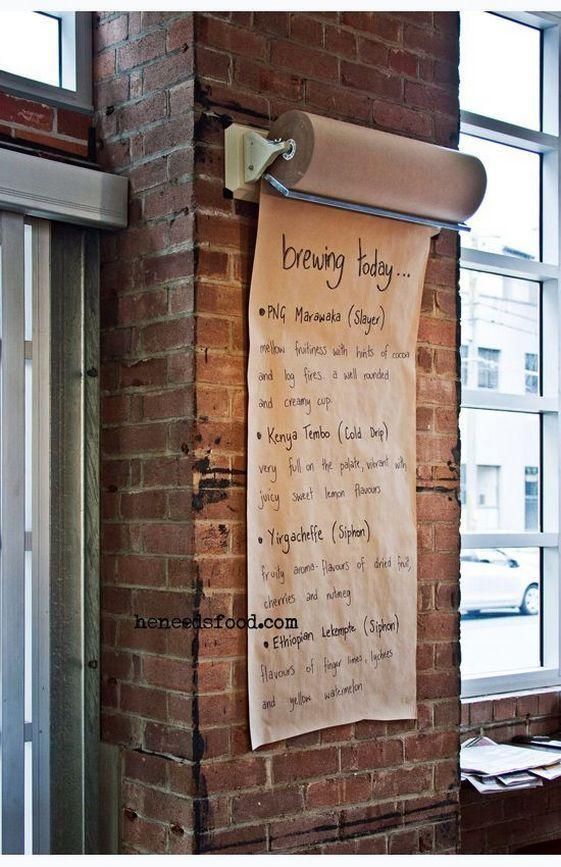 brewing today...
• PNG Marawaka (Slayer)
mellow fruitiness with hints of cocoa
and log fires. a well rounded
and creamy cup.
• Kenya Tembo (Cold Drip)
very full on the palate, vibrant with
juicy sweet lemon flavours
• Yirgacheffe (Siphon)
fruity aroma - flavours of dried fruit,
cherries and nutmeg
heneedsfood.com
• Ethiopian Lekempte (Siphon)
flavours of finger limes, lychees
and yellow watermelon